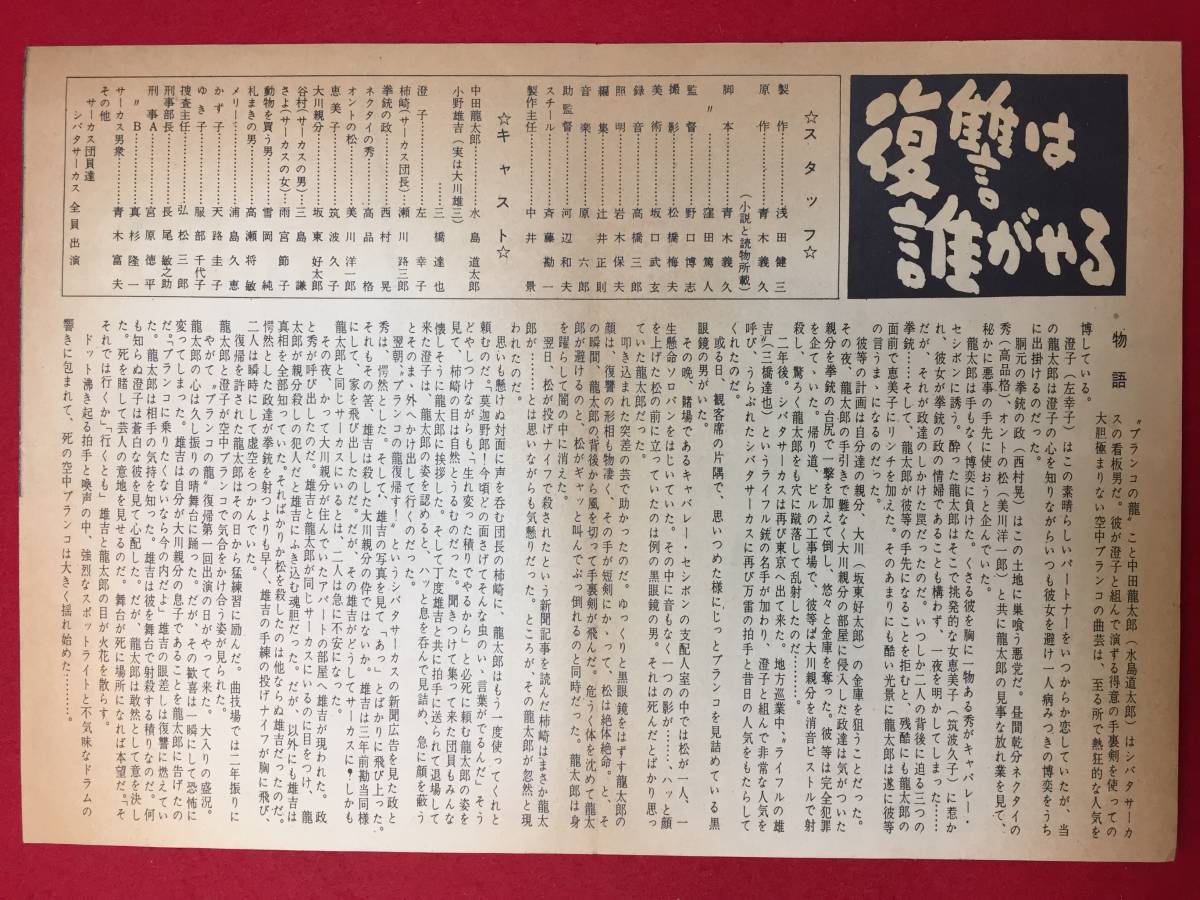 復讐は
誰がやる
☆スタッフ☆
製作…………浅田健三
原作…………青木義久
(小説と読物所載)
脚本…………青木義久
〃…………窪田篤人
監督…………野口博志
撮影…………松橋梅夫
美術…………坂口武玄
録音…………高橋三郎
照明…………岩木保夫
編集…………辻井正則
音楽…………原六郎
助監督…………河辺和夫
スチール…………斉藤勘一
製作主任…………中井景
☆キャスト☆
中田龍太郎…………水島道太郎
小野雄吉(実は大川雄三)
…………三橋達也
澄子…………左幸子
柿崎(サーカス団長)…瀬川路三郎
拳銃の政…………西村晃
ネクタイの秀…………高品格
オントの松…………美川洋一郎
恵美子…………筑波久子
大川親分…………坂東好太郎
谷村(サーカスの男)…三島謙
さよ(サーカスの女)…雨宮節子
動物を買う男…………雪岡純
札まきの男…………高瀬将敏
メリー…………浦島久恵
かず子…………天路圭子
ゆき子…………服部千代子
捜査主任…………弘松三郎
刑事部長…………長尾敏之助
刑事A…………宮原徳平
〃B…………真杉隆一
サーカス男衆…………青木富夫
その他
サーカス団員達
シバタサーカス 全員出演
物語
〝ブランコの龍〟こと中田龍太郎(水島道太郎)はシバタサーカ
スの看板男だ。彼が澄子と組んで演ずる得意の手裏剣を使っての
大胆極まりない空中ブランコの曲芸は、至る所で熱狂的な人気を
博している。
澄子(左幸子)はこの素晴らしいパートナーをいつからか恋していたが、当
の龍太郎は澄子の心を知りながらいつも彼女を避け一人病みつきの博奕をうち
に出掛けるのだった。
胴元の拳銃の政(西村晃)はこの土地に巣喰う悪党だ。昼間乾分ネクタイの
秀(高品格)、オントの松(美川洋一郎)と共に龍太郎の見事な放れ業を見て、
秘かに悪事の手先に使おうと企んでいた。
龍太郎は今日もなく博奕に負けた。くさる彼を胸に一物ある秀がキャバレー・
セシボンに誘う。酔った龍太郎はそこで挑発的な女恵美子(筑波久子)に惹か
れ、彼女が拳銃の政の情婦であることも構わず、一夜を明かしてしまった……
だが、それが政達のしかけた罠だったのだ。いつしか二人の背後に迫る三つの
拳銃……そして、龍太郎が彼等の手先になることを拒むと、残酷にも龍太郎の
面前で恵美子にリンチを加えた。そのあまりにも酷い光景に龍太郎は遂に彼等
の言うまゝになるのだった。
彼等の計画は自分達の親分、大川(坂東好太郎)の金庫を狙うことだった。
その夜、龍太郎の手引きで難なく大川親分の部屋に侵入した政達は気がついた
親分を拳銃の台尻で一撃を加えて倒し、悠々と金庫を奪った。彼等は完全犯罪
を企てゝいた。帰り道、ビルの工事場で、彼等は大川親分を消音ピストルで射
殺し、驚ろく龍太郎をも穴に蹴落して乱射したのだ……
二年後。シバタサーカスは再び東京へ出て来た。地方巡業中、〝ライフルの雄
吉〟(三橋達也)というライフル銃の名手が加わり、澄子と組んで非常な人気を
呼び、うらぶれたシバタサーカスに再び万雷の拍手と昔日の人気をもたらして
くれたのだ。
或る日、観客席の片隅で、思いつめた様にじっとブランコを見詰めている黒
眼鏡の男がいた。
その晩、賭場であるキャバレー・セシボンの支配人室の中では松が一人、一
生懸命ソロバンをはじいていた。その中に音もなく一つの影が……ハッと顔
を上げた松の前に立っていたのは例の黒眼鏡の男。それは死んだとばかり思っ
ていた龍太郎だった。
叩き込まれた突差の芸で助かったのだ。ゆっくりと黒眼鏡をはずす龍太郎の
顔は、復讐の形相も物凄く、その手が短剣にかゝって、松は絶体絶命。と、そ
の瞬間、龍太郎の背後から風を切って手裏剣が飛んだ。危うく体を沈めて龍太
郎が避けるのと、松がギャッと叫んでぶっ倒れるのと同時だった。龍太郎は身
を躍らして闇の中に消えた。
翌日、松が投げナイフで殺されたという新聞記事を読んだ柿崎はまさか龍太
郎が……とは思いながらも気懸りだった。ところが、その龍太郎が忽然と現
われたのだ。
思いも懸けぬ対面に声を呑む団長の柿崎に、龍太郎はもう一度使ってくれと
頼むのだった。「莫迦野郎!今頃どの面さげてそんな虫のいゝ言葉がでるんだ」そう
どやしつけながらも、「生れ変った積りでやるから」と必死に頼む龍太郎の姿を
見て、柿崎の目は自然とうるむのだった。聞きつけて集って来た団員もみんな
懐しそうに、龍太郎に挨拶した。そして丁度雄吉と共に拍手に送られて退場して
来た澄子は、龍太郎の姿を認めると、ハッと息を呑んで見詰め、急に顔を蔽う
とそのまゝ外へかけ出して行くのだった。
翌朝、〝ブランコの龍復帰す!〟というシバタサーカスの新聞広告を見た政と
秀は、愕然とした。そして、雄吉の写真を見て「あっ」とばかりに飛び上った。
それもその筈、雄吉は殺した大川親分の伜ではないか。雄吉は三年前勘当同様
にして、家を飛び出したのだ。だが、その雄吉がどうしてサーカスに?しかも
龍太郎と同じサーカスにいるとは、二人は急に不安になった。
その夜、かつて大川親分が住んでいたアパートの部屋へ雄吉が現われた。政
と秀が呼び出したのだ。雄吉と龍太郎が同じサーカスにいるのに目をつけ、龍
太郎が親分殺しの犯人だと雄吉にふき込む魂胆だった。だが、以外にも雄吉は
真相を全部知っていた。そればかりか松を殺したのは他ならぬ雄吉だったのだ。
愕然とした政達が拳銃を射つよりも早く、雄吉の手練の投げナイフが胸に飛び、
二人は瞬時にして虚空をつかんでいた。
復帰を許された龍太郎はその日から猛練習に励んだ。曲技場では二年振りに
龍太郎と澄子が空中ブランコで気合をかけ合う姿が見られた。
やがて、〝ブランコの龍〟復帰第一回出演の日がやって来た。大入りの盛況。
龍太郎の心は久し振りの晴舞台に踊った。だが、その歓喜は一瞬にして恐怖に
変ってしまった。雄吉は自分が大川親分の息子であることを龍太郎に告げたの
だ。「ブランコに乗りたくないなら今の内だよ」雄吉の眼差しは復讐に燃えてい
た。龍太郎は相手の気持を知った。雄吉は彼を舞台で射殺する積りなのだ。何
も知らぬ澄子は蒼白な彼を見て心配した。だが、龍太郎は敢然として意を決し
た。死を賭して芸人の意地を見せるのだ。舞台が死に場所になれば本望だ。「そ
れでは行くか」「行くとも」雄吉と龍太郎の目が火花を散らす。
ドット沸き起る拍手と喚声の中、強烈なスポットライトと不気味なドラムの
響きに包まれて、死の空中ブランコは大きく揺れ始めた……。